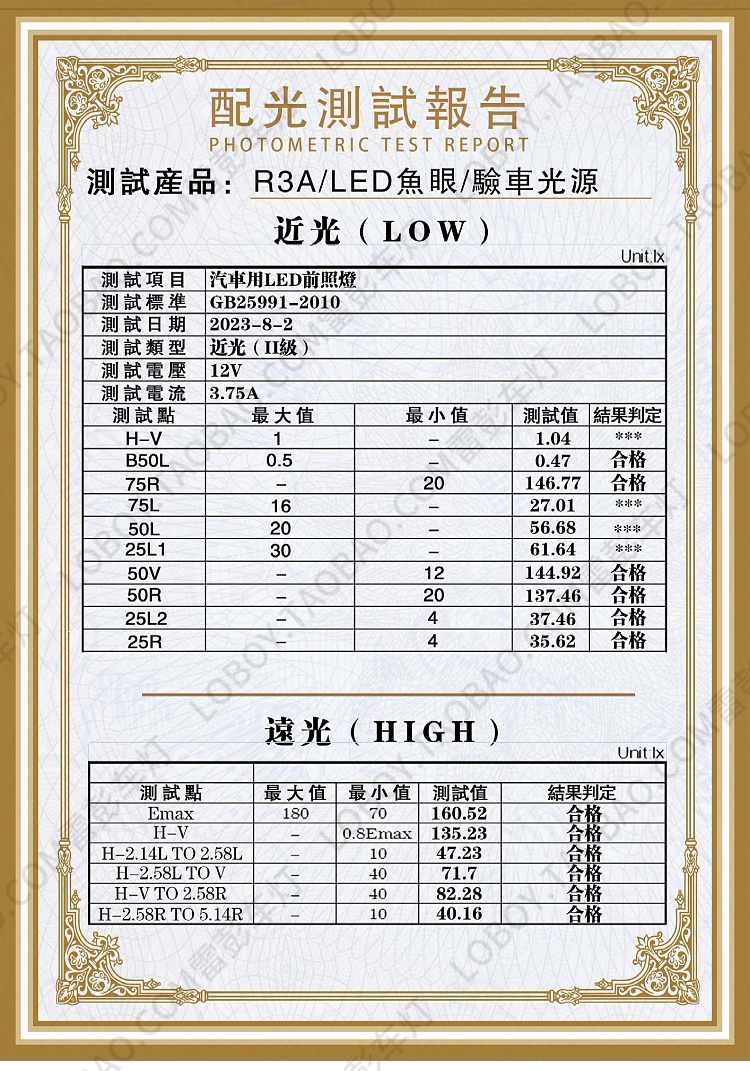 配光測試報告
PHOTOMETRIC TEST REPORT
測試産品：R3A/LED魚眼/驗車光源
近光（LOW）
Unit:lx
測試項目 汽車用LED前照燈
測試標準 GB25991-2010
測試日期 2023-8-2
測試類型 近光（II級）
測試電壓 12V
測試電流 3.75A
測試點 最大值 最小值 測試值 結果判定
H-V 1 - 1.04 ***
B50L 0.5 - 0.47 合格
75R - 20 146.77 合格
75L 16 - 27.01 ***
50L 20 - 56.68 ***
25L1 30 - 61.64 ***
50V - 12 144.92 合格
50R - 20 137.46 合格
25L2 - 4 37.46 合格
25R - 4 35.62 合格
遠光（HIGH）
Unit:lx
測試點 最大值 最小值 測試值 結果判定
Emax 180 70 160.52 合格
H-V - 0.8Emax 135.23 合格
H-2.14L TO 2.58L - 10 47.23 合格
H-2.58L TO V - 40 71.7 合格
H-V TO 2.58R - 40 82.28 合格
H-2.58R TO 5.14R - 10 40.16 合格
LOBOY.TAOBAO.COM雷彭车灯